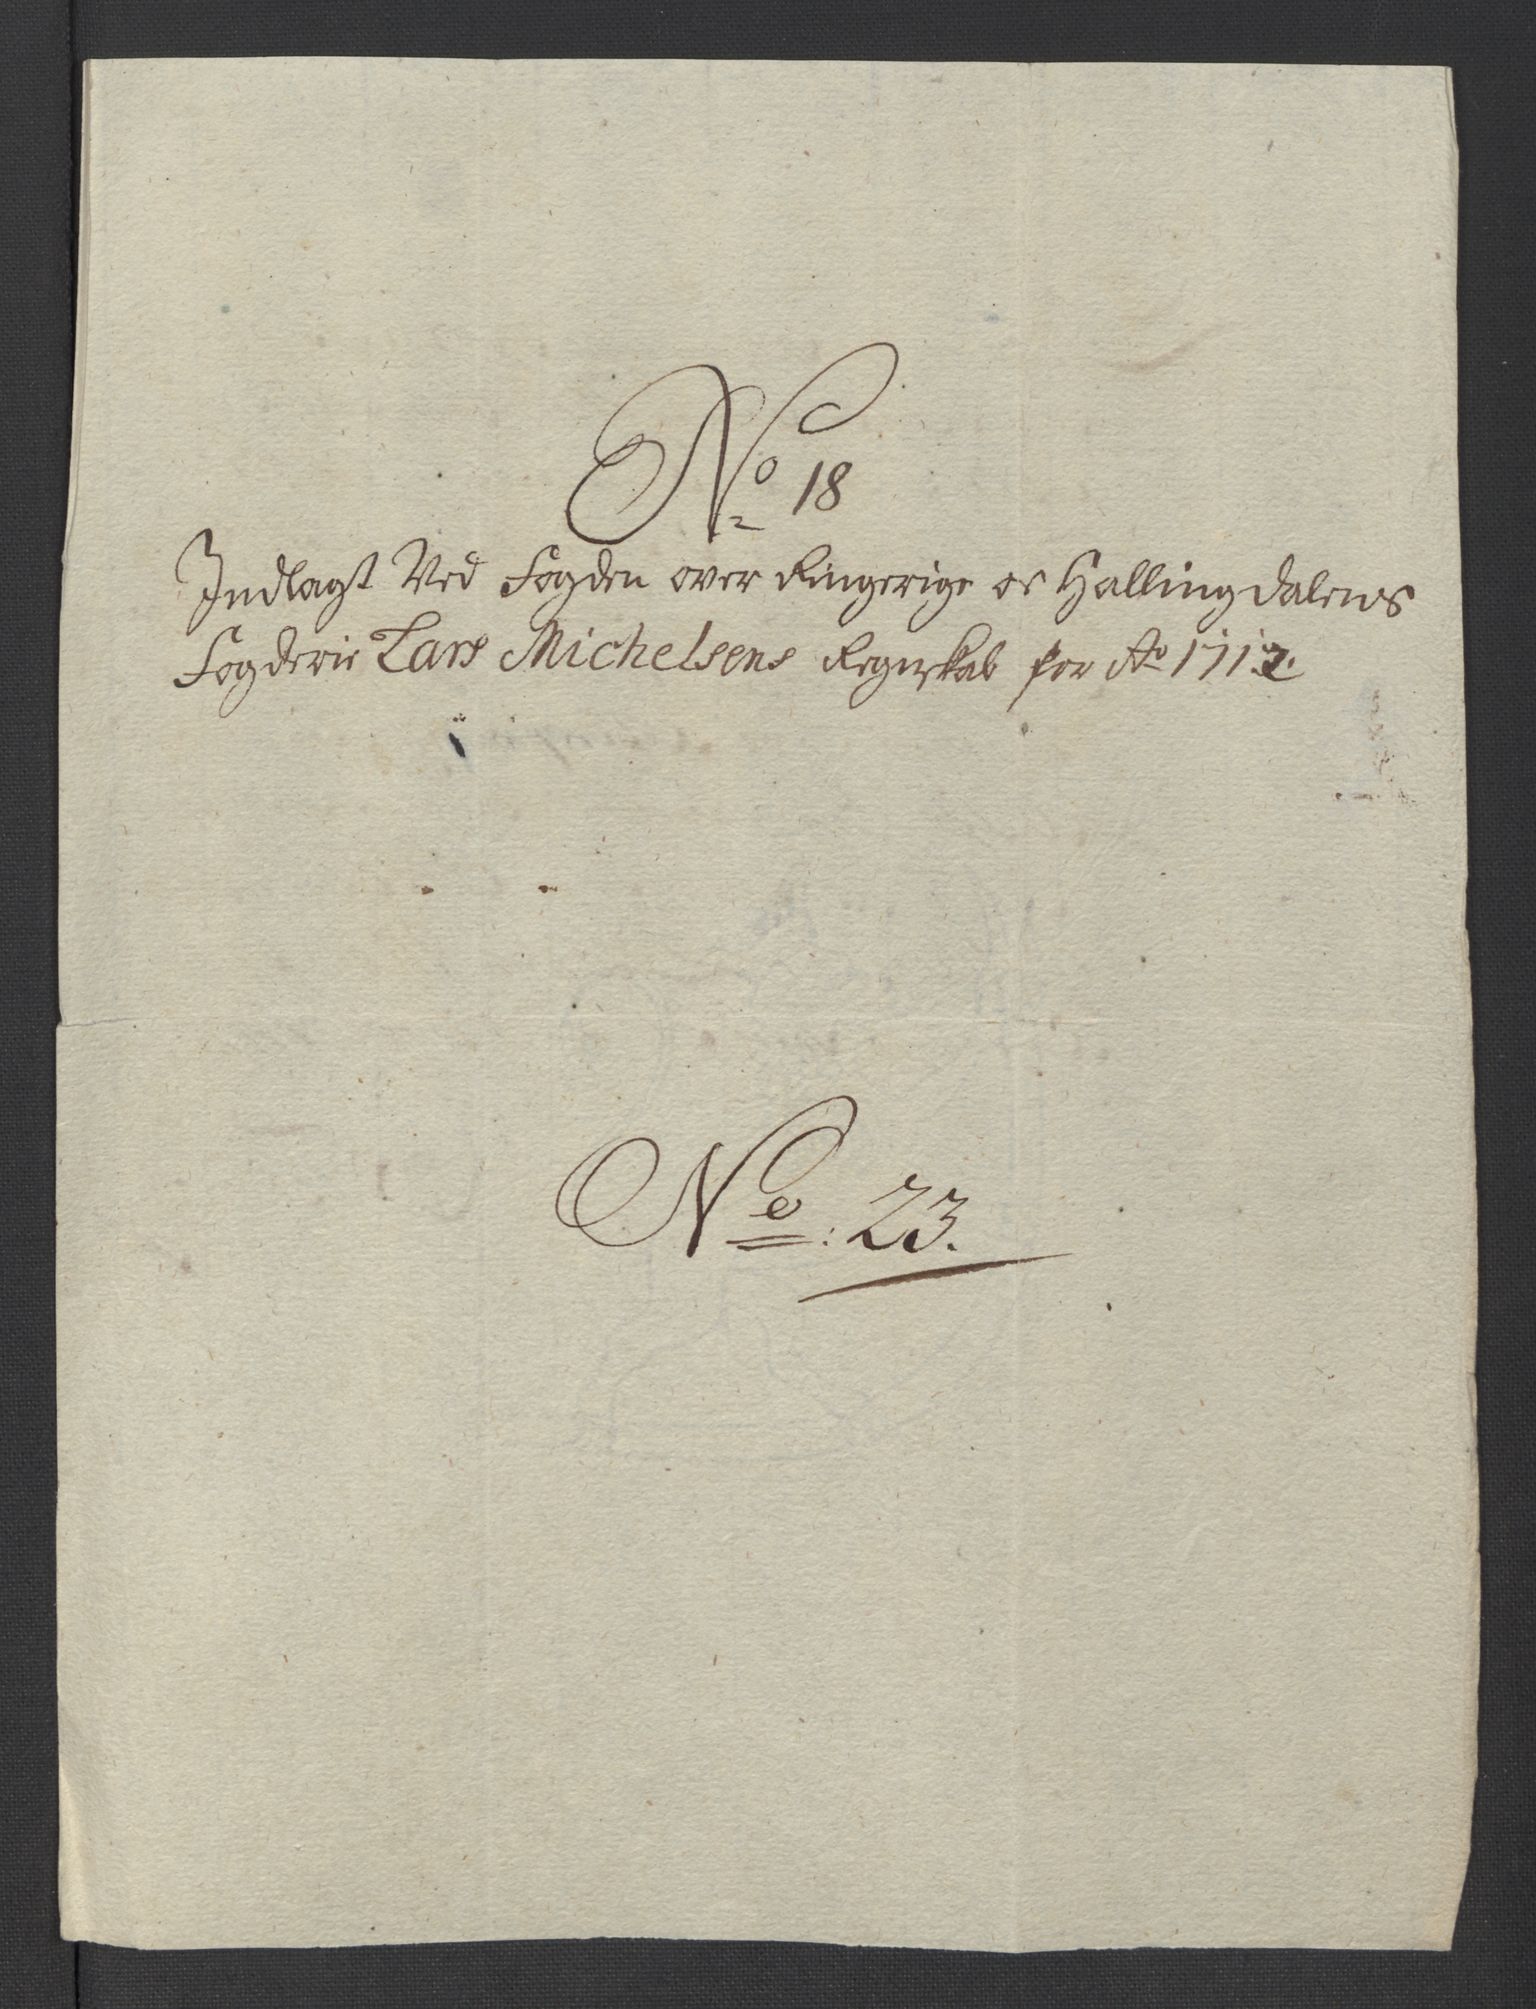 No 18
Indlagt Ved Fogden over Ringerige oc Hallingdalens
Fogderie Lars Michelsens Regnskab for Ao 1712.
No: 23.